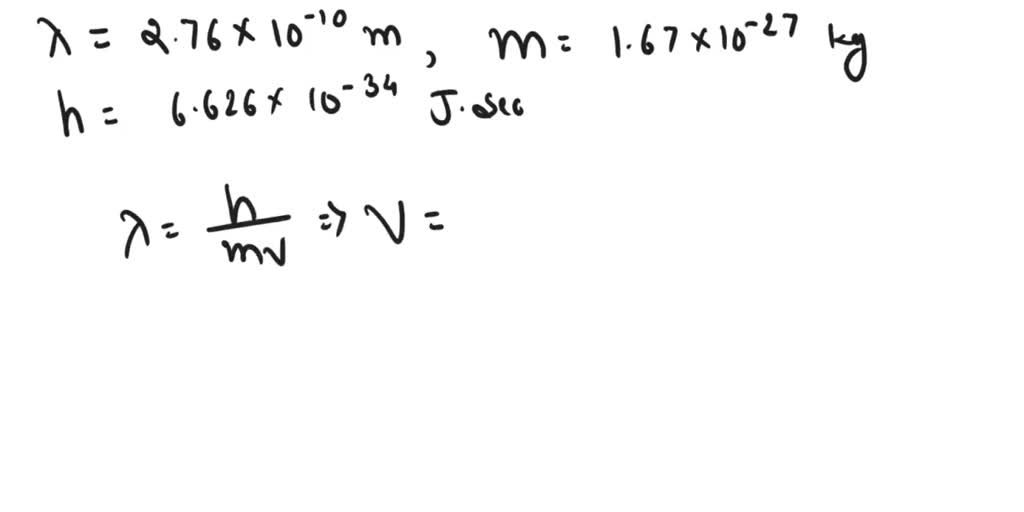 λ = 2.76 × 10⁻¹⁰ m, m = 1.67 × 10⁻²⁷ kg
h = 6.626 × 10⁻³⁴ J·sec
λ = h/mv ⇒ V =